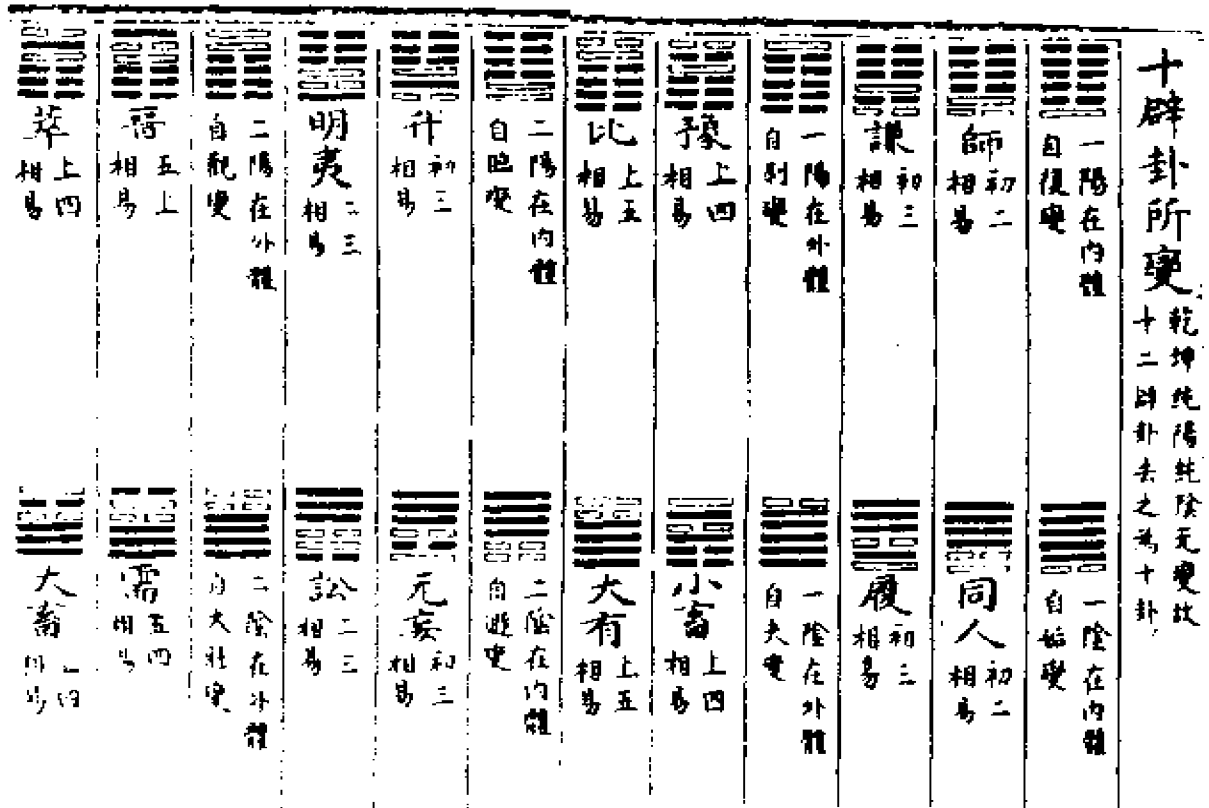 十辟卦所變
乾坤純陽純陰无變故
十二辟卦去之為十卦
一陽在內體
自復變
一陰在內體
自姤變
師
初二
相易
同人
初二
相易
謙
初三
相易
履
初三
相易
一陽在外體
自剝變
一陰在外體
自夬變
豫
上四
相易
小畜
上四
相易
比
上五
相易
大有
上五
相易
二陽在內體
自臨變
二陰在內體
自遯變
升
初三
相易
无妄
初三
相易
明夷
二三
相易
訟
二三
相易
二陽在外體
自觀變
二陰在外體
自大壯變
晉
五上
相易
需
五四
相易
萃
上四
相易
大畜
上四
相易